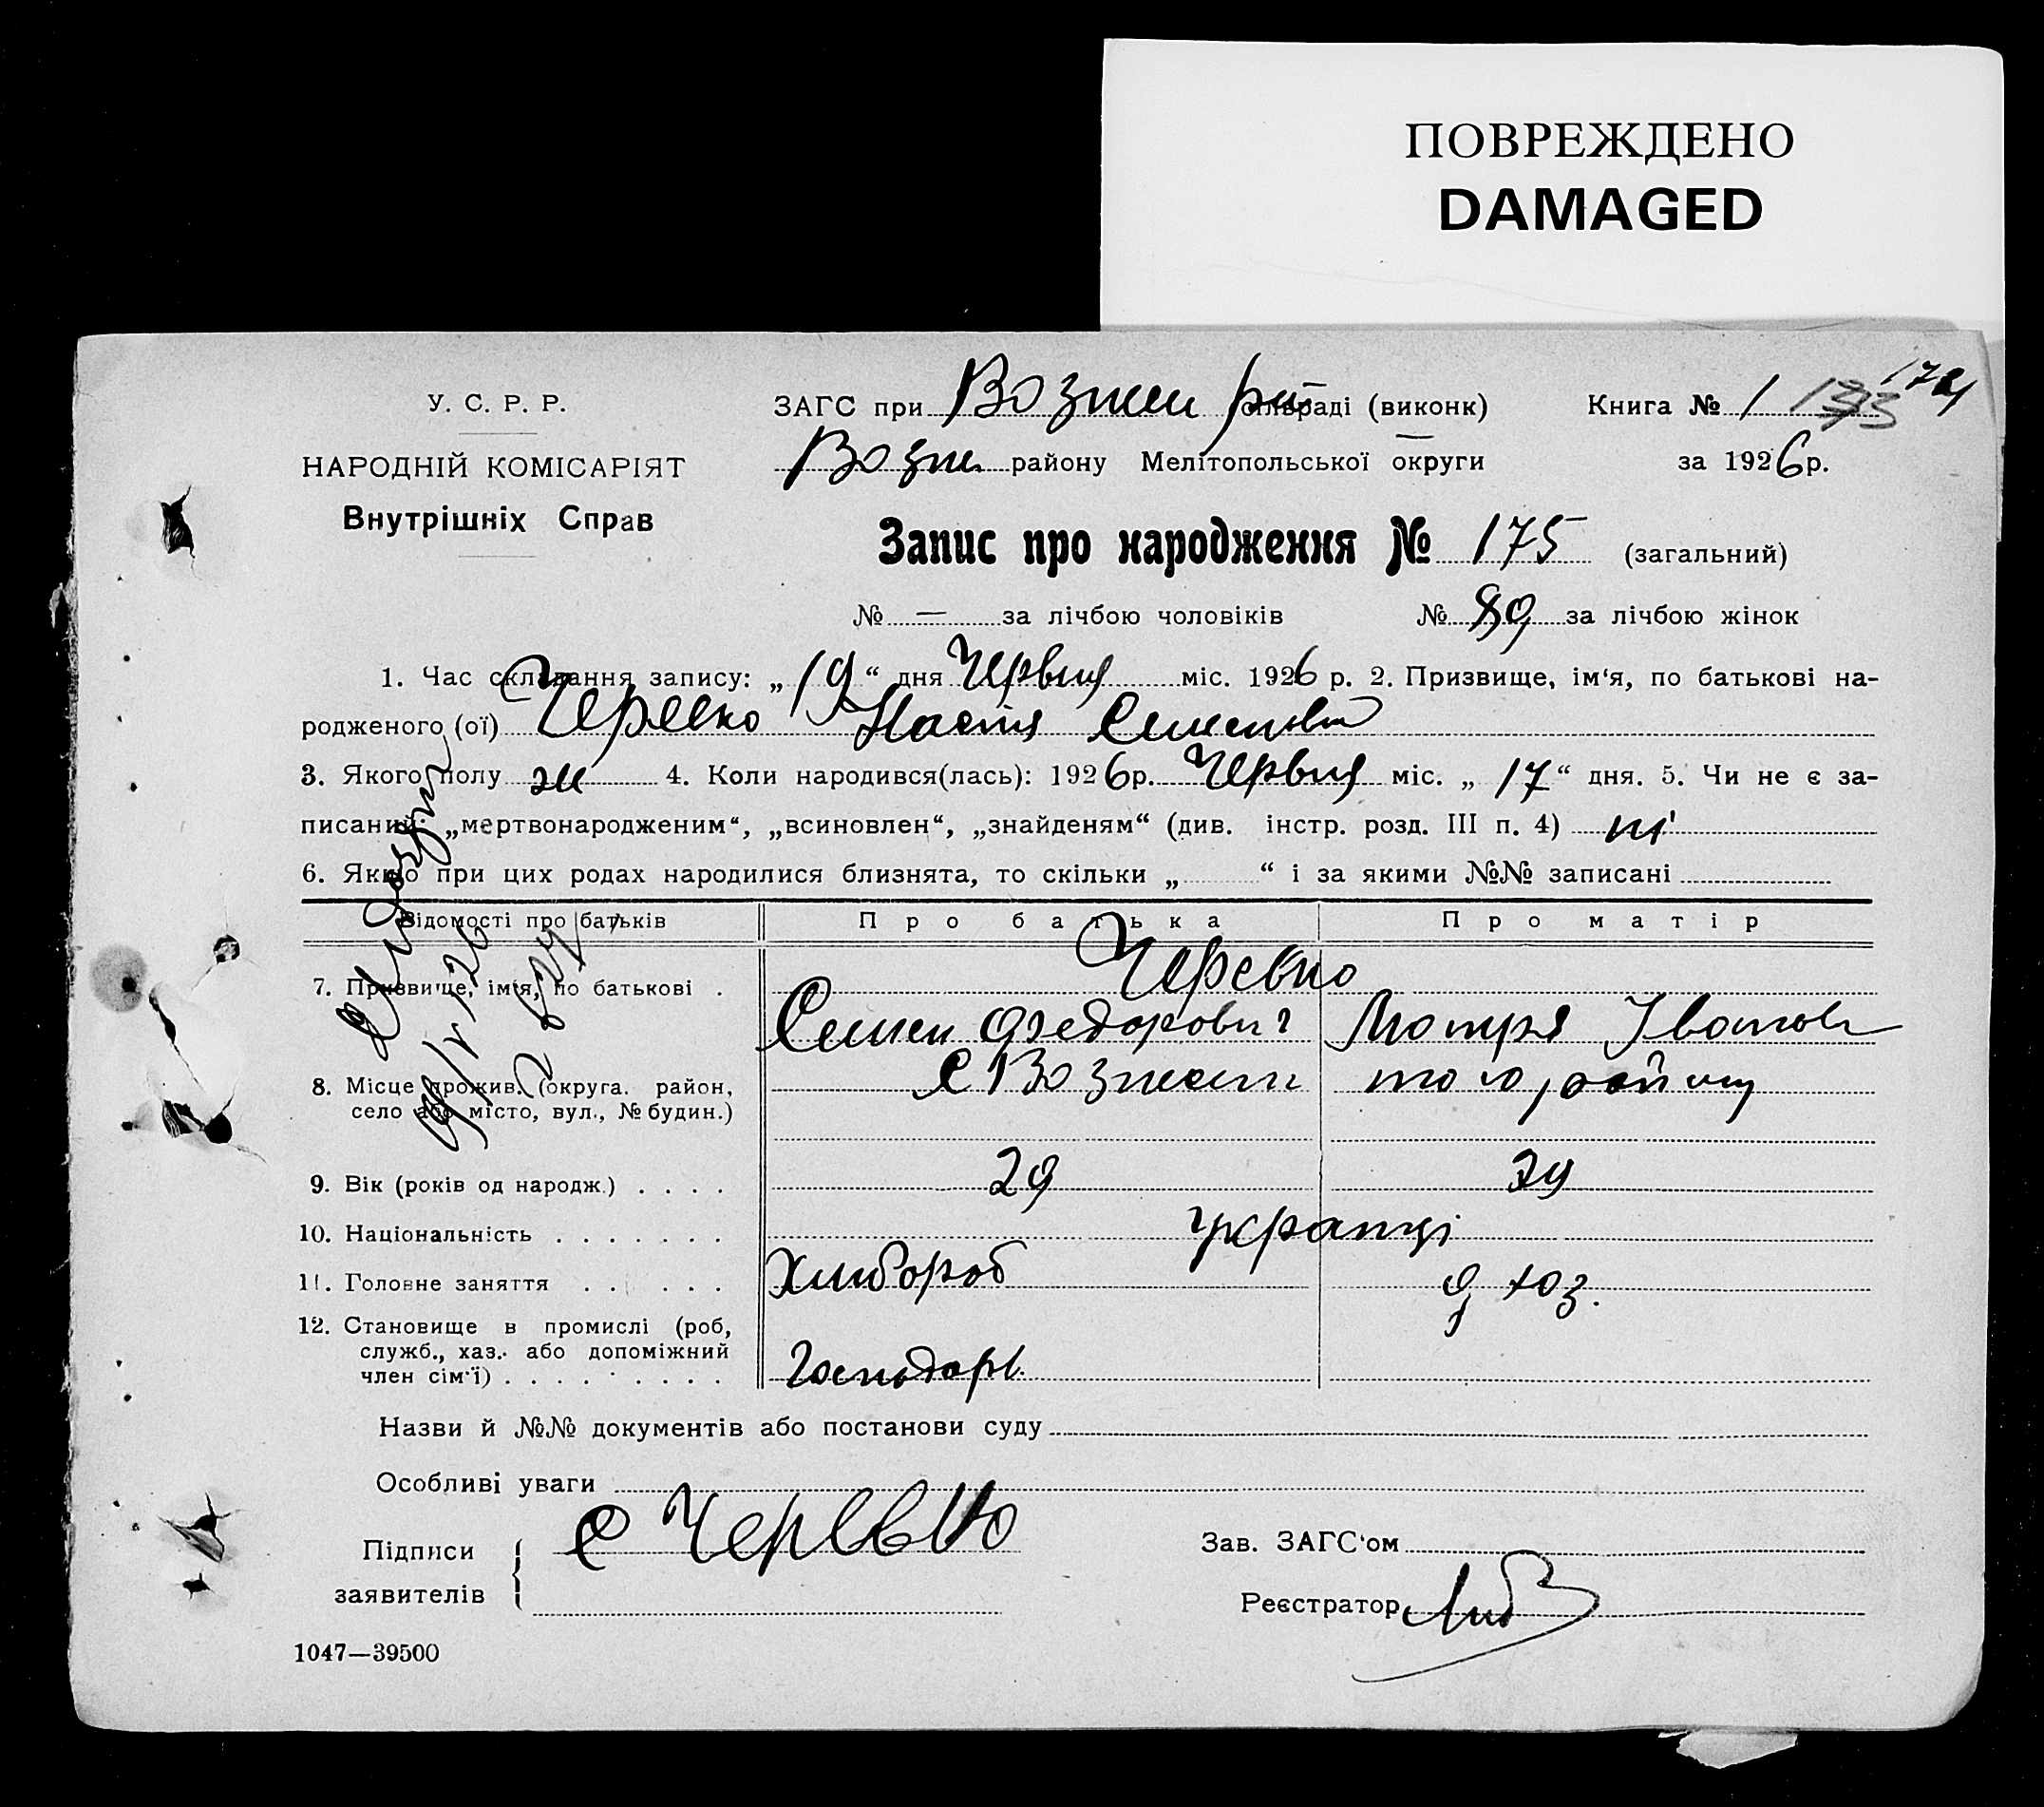 ПОВРЕЖДЕНО
DAMAGED
У. С. Р. Р.
НАРОДНІЙ КОМІСАРІЯТ
Внутрішніх Справ
ЗАГС при Вознес сільраді (виконк) Книга № 1
Возне району Мелітопольської округи за 1926 р.
Запис про народження № 175 (загальний)
№ — за лічбою чоловіків № 89 за лічбою жінок
1. Час складання запису: „19“ дня Червня міс. 1926 р. 2. Призвище, ім‘я, по батькові на-
родженого (ої) Черевко Настя Семенов
3. Якого полу ж 4. Коли народився(лась): 1926 р. Червня міс. „17“ дня. 5. Чи не є за-
писаний: „мертвонародженим“, „всиновлен“, „знайденям“ (див. інстр. розд. III п. 4) ні
6. Якщо при цих родах народилися близнята, то скільки „ “ і за якими №№ записані
Відомості про батьків Про батька Про матір
7. Призвище, ім‘я, по батькові . Черевко
Семен Федорович Мотря Іванов
8. Місце прожив. (округа. район, с Вознесен того району
село або місто, вул., № будин.)
9. Вік (років од народж.) . . . . 29 29
10. Національність . . . . . . . Українці
11. Головне заняття . . . . . Хлібороб д хоз.
12. Становище в промислі (роб,
служб., хаз. або допоміжний
член сім‘ї) . . . . . . . . . Господарь
Назви й №№ документів або постанови суду
Особливі уваги
Підписи С Черевко Зав. ЗАГС‘ом
заявителів Реєстратор
1047—39500